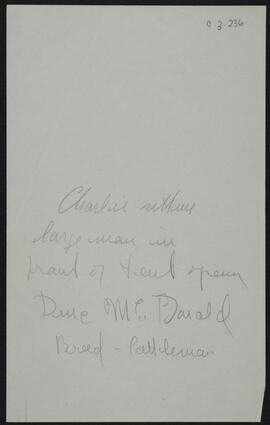 C.3.236
Charlie
large man in
front of tent open
Dave McDonald
Breed - Cattleman